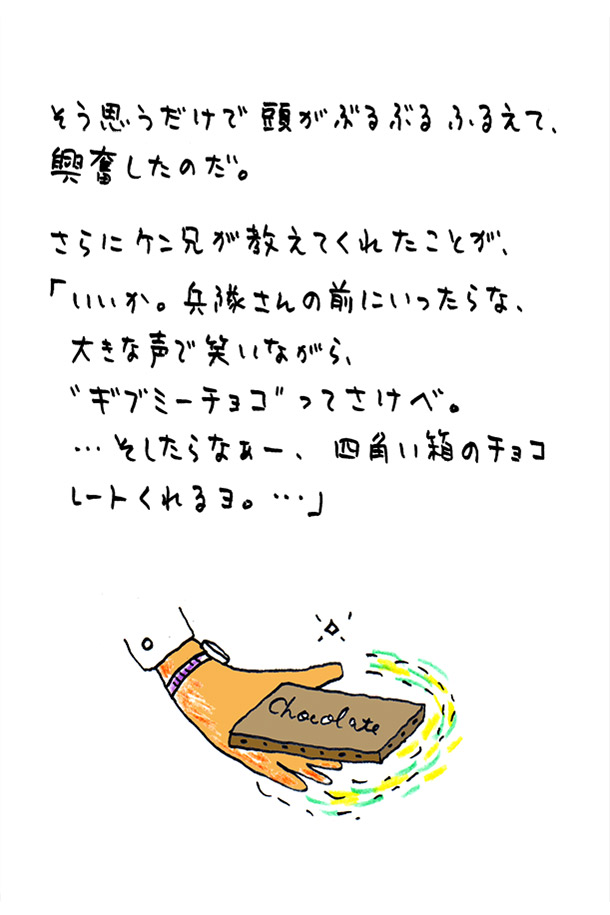 そう思うだけで頭がぶるぶるふるえて、
興奮したのだ。
さらにケン兄が教えてくれたことが、
「いいか。兵隊さんの前にいったらな、
大きな声で笑いながら、
〝ギブミーチョコ〟ってさけべ。
…そしたらなぁー、四角い箱のチョコ
レートくれるヨ。…」
Chocolate